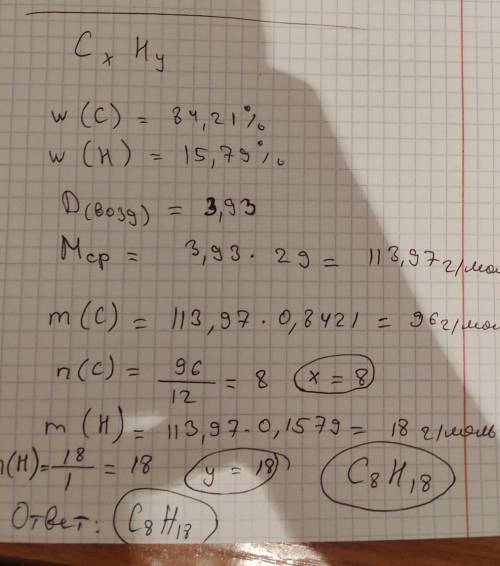 CxHy
w(C) = 84,21%
w(H) = 15,79%
D(возд) = 3,93
Mср = 3,93 · 29 = 113,97 г/мол
m(C) = 113,97 · 0,8421 = 96 г/мол
n(C) = 96/12 = 8 x = 8
m(H) = 113,97 · 0,1579 = 18 г/моль
n(H) = 18/1 = 18 y = 18 C8H18
Ответ: C8H18